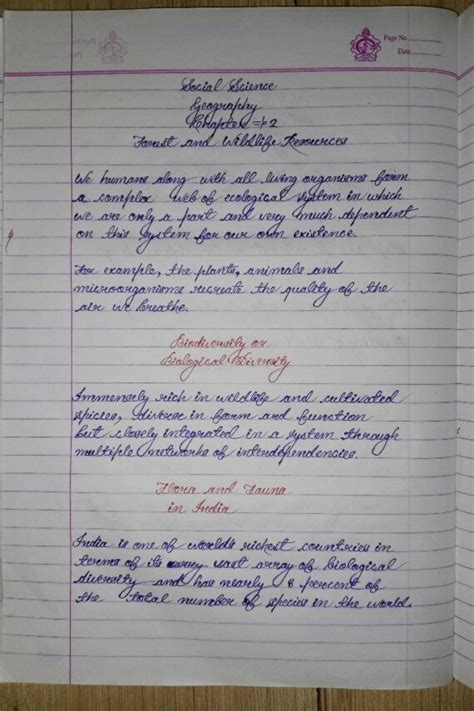 Page No.
Date
Social Science
Geography
Chapter ⇒ 2
Forest and Wildlife Resources
We humans along with all living organisms form
a complex web of ecological system in which
we are only a part and very much dependent
on this system for our own existence.
For example, the plants, animals and
microorganisms recreate the quality of the
air we breathe.
Biodiversity or
Biological Diversity
Immensely rich in wildlife and cultivated
species, diverse in form and function
but closely integrated in a system through
multiple networks of interdependencies.
Flora and Fauna
in India
India is one of world's richest countries in
terms of its vast array of biological
diversity and has nearly 8 percent of
the total number of species in the world.